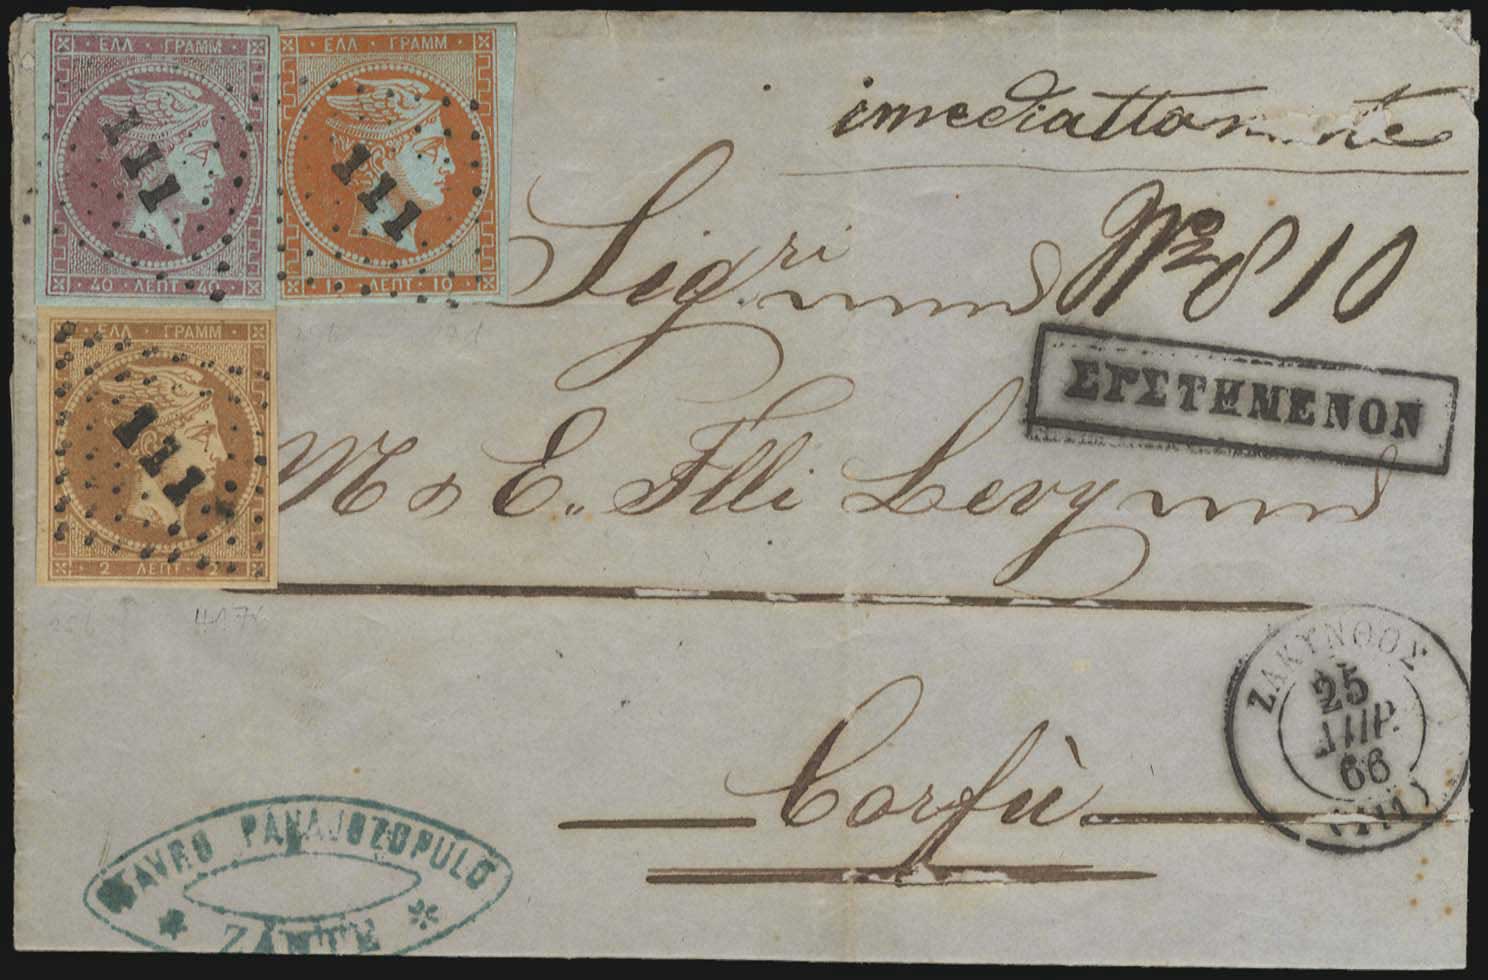 ΕΛΛ · ΓΡΑΜΜ
111
40 ΛΕΠΤ · 40
ΕΛΛ · ΓΡΑΜΜ
111
1 · ΛΕΠΤ · 10
ΕΛΛ · ΓΡΑΜΜ
111
2 ΛΕΠΤ · 2
imediattamente
Sig.ri
No 810
ΣΥΣΤΗΜΕΝΟΝ
M & E. Flli Levy
Corfù
ΖΑΚΥΝΘΟΣ
25
ΑΠΡ.
66
(111)
STAVRO PANAJOZOPULO
* ZANTE *